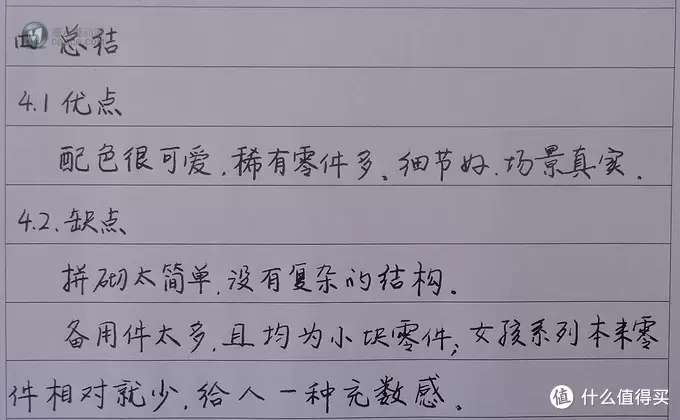 四 总结
4.1 优点
配色很可爱，稀有零件多、细节好，场景真实。
4.2.缺点
拼砌太简单，没有复杂的结构。
备用件太多，且均为小块零件；女孩系列本来零
件相对就少，给人一种充数感。
值 什么值得买